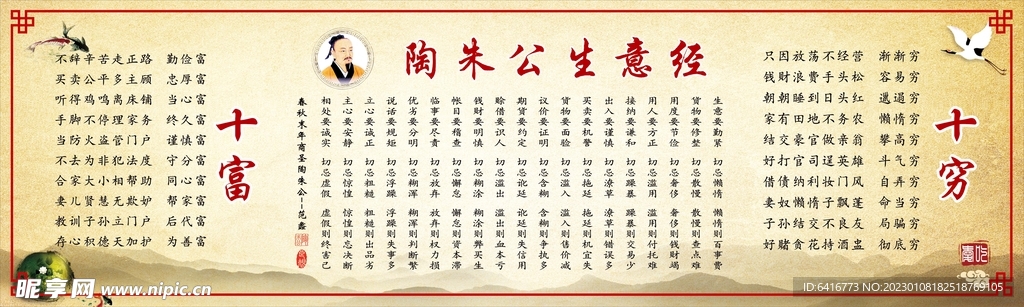 陶朱公生意经
十富
不辞辛苦走正路 勤俭富
买卖公平多主顾 忠厚富
听得鸡鸣离床铺 当心富
手脚不停理家务 终久富
当防火盗管门户 谨慎富
不去为非犯法度 守分富
合家大小相帮助 同心富
妻儿贤慧无欺妒 帮家富
教训子孙立门户 后代富
存心积德天加护 为善富
生意要勤紧 切忌懒惰 懒惰则百事费
货物要修整 切忌散慢 散慢则查点难
用度要节俭 切忌奢侈 奢侈则钱财竭
用人要方正 切忌滥用 滥用则付托难
接纳要谦和 切忌躁暴 躁暴则交易少
出入要谨慎 切忌潦草 潦草则错误多
买卖要机警 切忌拖延 拖延则机宜失
货物要面验 切忌滥入 滥入则售价减
议价要证明 切忌含糊 含糊则争执多
期货要约定 切忌讹延 讹延则失信用
赊借要识人 切忌滥出 滥出则血本亏
钱财要明慎 切忌糊涂 糊涂则弊买生
帐目要稽查 切忌懈怠 懈怠则资本滞
临事要尽责 切忌放弃 放弃则权力损
优劣要分明 切忌糊浑 糊浑则判断繁
说话要规矩 切忌浮躁 浮躁则失事多
立心要诚正 切忌粗糙 粗糙则出品劣
主心要安静 切忌惊惶 惊惶则忌决断
相处要诚实 切忌虚假 虚假则终害己
春秋末年商圣陶朱公--范蠡
十穷
只因放荡不经营 渐渐穷
钱财浪费手头松 容易穷
朝朝睡到日头红 邋遢穷
家有田地不务农 懒惰穷
结交豪官做亲翁 攀高穷
好打官司逞英雄 斗气穷
借债纳利妆门风 自弄穷
妻奴懒惰子飘蓬 自当穷
子孙结交不良友 局骗穷
好赌贪花不 酒 彻底穷
昵享网 www.nipic.cn
ID:6416773 NO:20230108182518769105